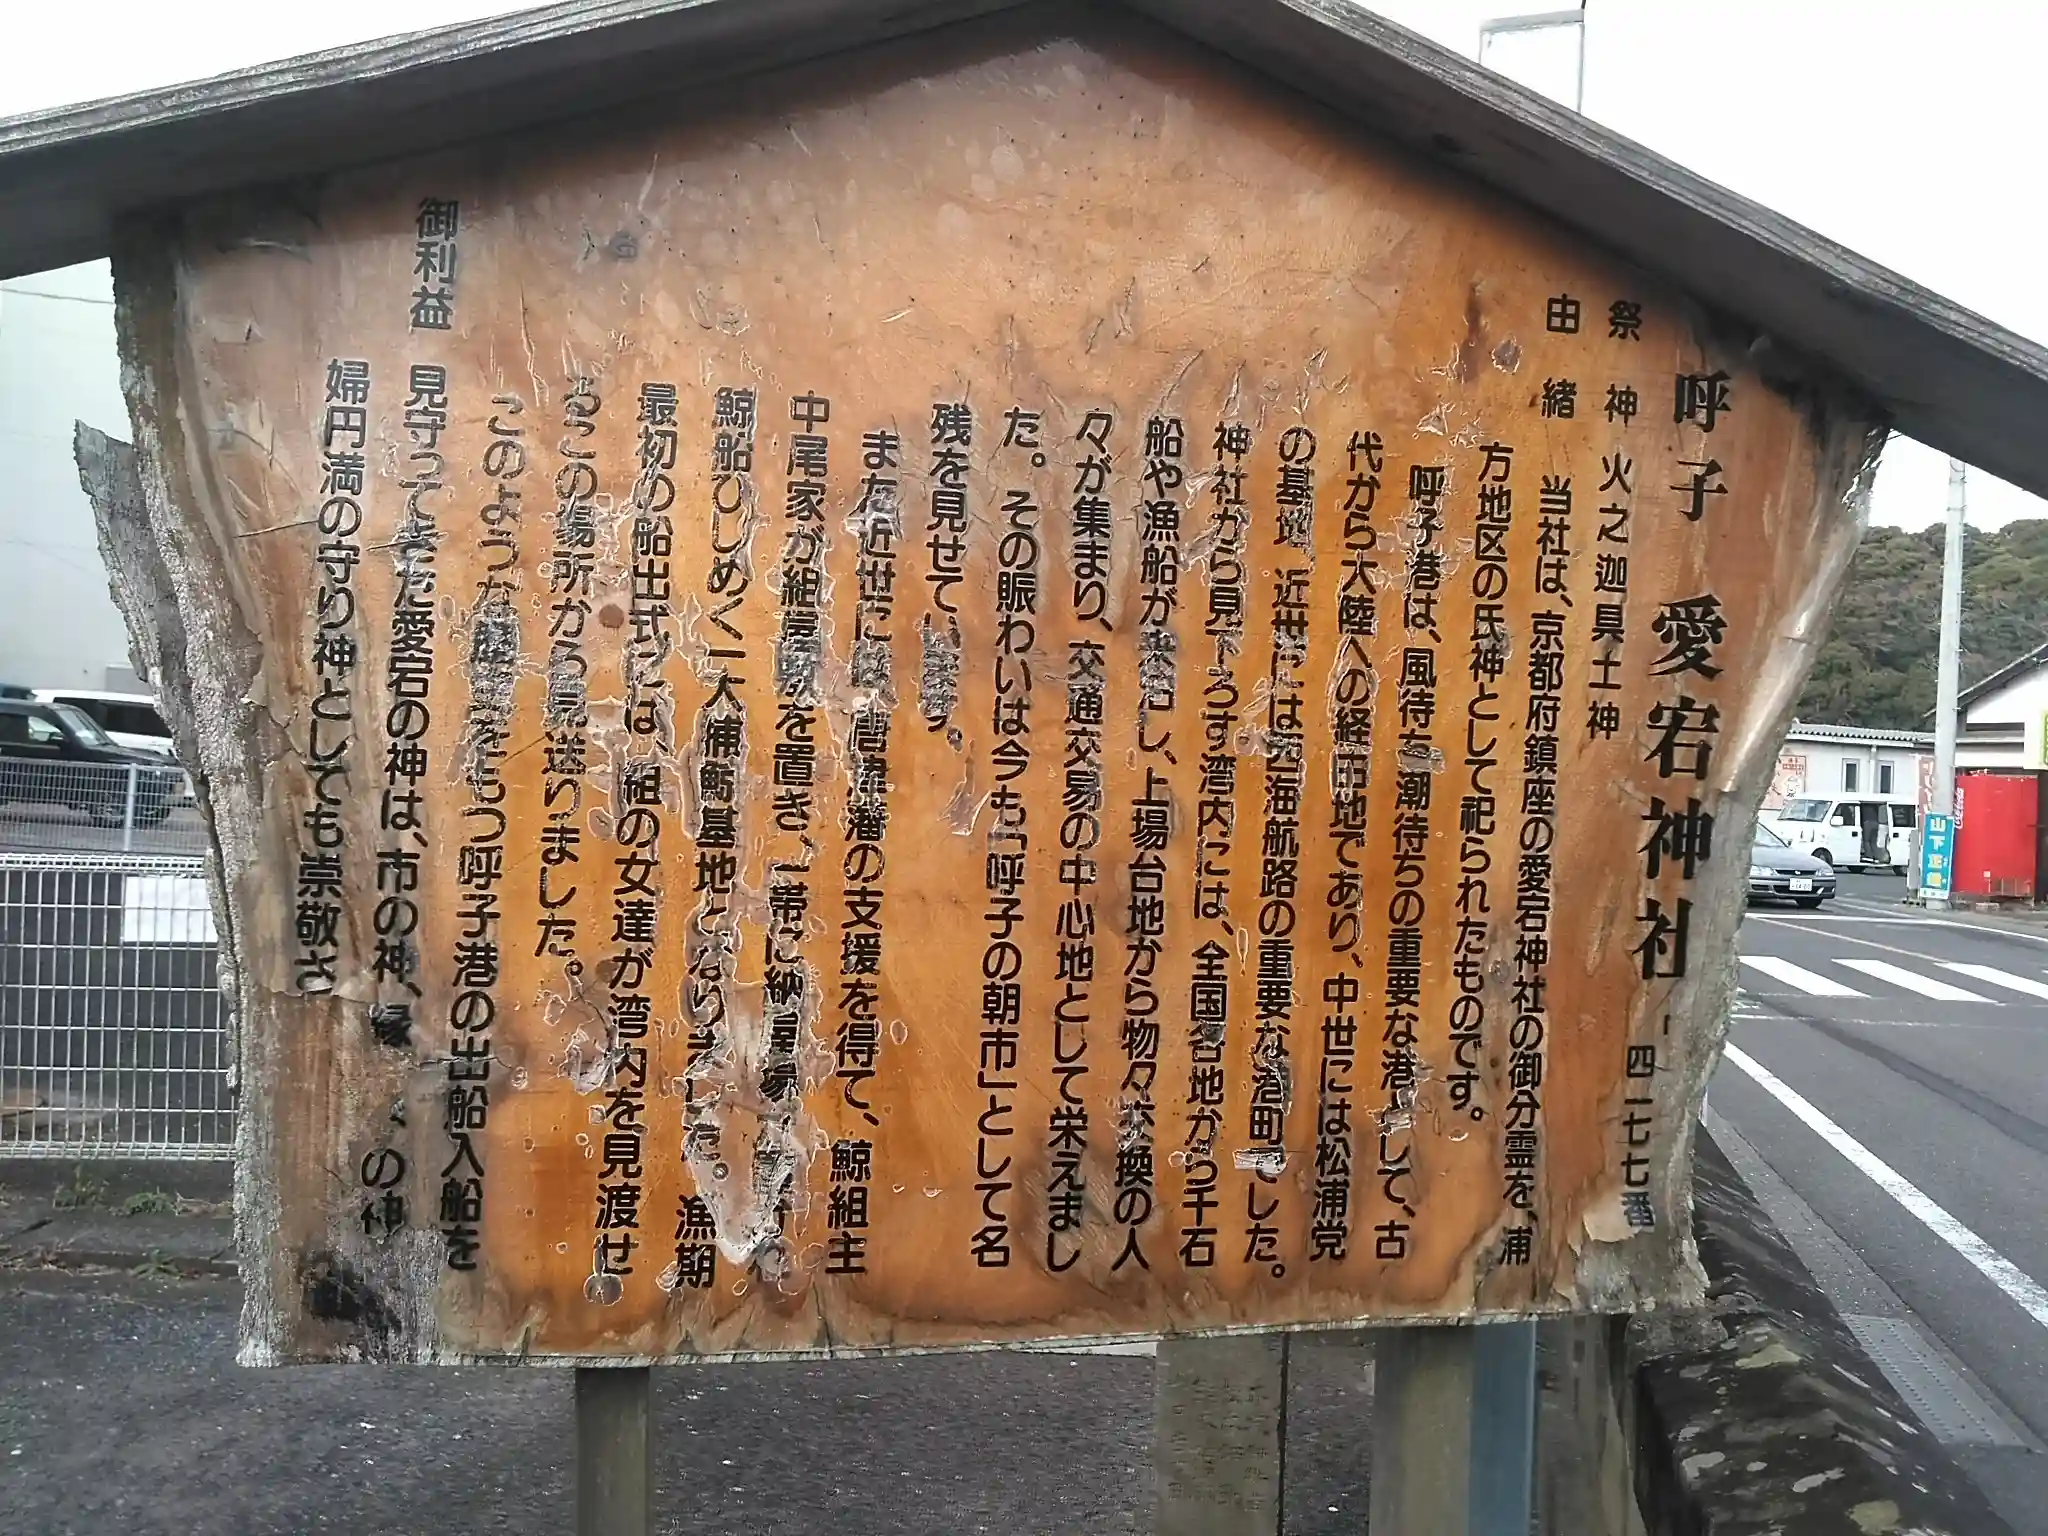 呼子 愛宕神社
四一七七番
祭神 火之迦具土神
由緒 当社は、京都府鎮座の愛宕神社の御分霊を、浦
方地区の氏神として祀られたものです。
呼子港は、風待ち潮待ちの重要な港として、古
代から大陸への経由地であり、中世には松浦党
の基地、近世には西海航路の重要な港町でした。
神社から見下ろす湾内には、全国各地から千石
船や漁船が来泊し、上場台地から物々交換の人
々が集まり、交通交易の中心地として栄えまし
た。その賑わいは今も「呼子の朝市」として名
残を見せています。
また近世には、唐津藩の支援を得て、鯨組主
中尾家が組屋敷を置き、一帯に納屋場
鯨船ひしめく一大捕鯨基地となりました。漁期
最初の船出式には、組の女達が湾内を見渡せ
るこの場所から見送りました。
このような歴史をもつ呼子港の出船入船を
御利益 見守ってきた愛宕の神は、市の神、縁 の神
婦円満の守り神としても崇敬さ
山下正